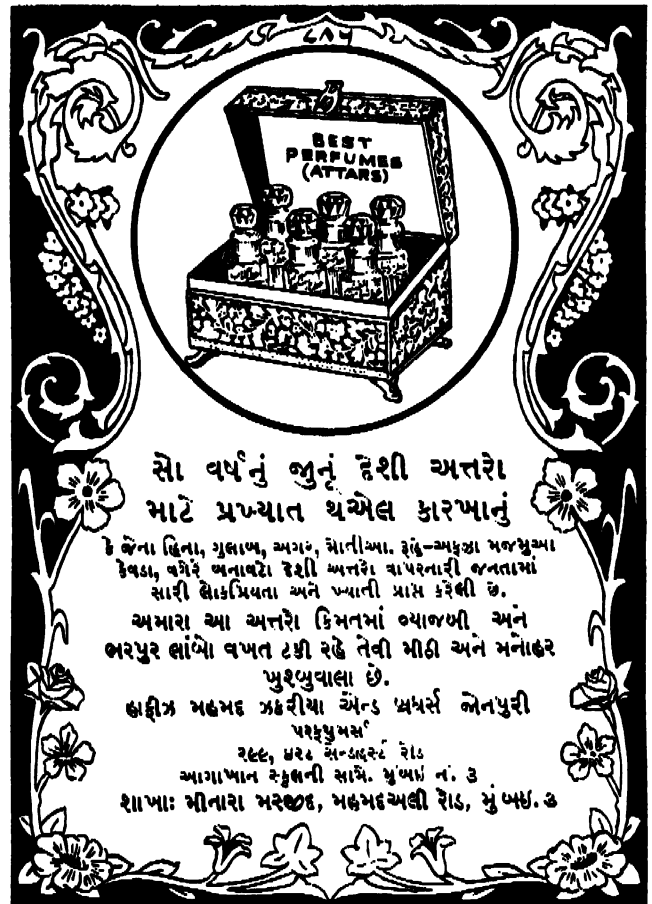 ૮૧૫
BEST
PERFUMES
(ATTARS)
સો વર્ષનું જુનૂં દેશી અત્તરો
માટે પ્રખ્યાત થએલ કારખાનું
કે જેના હિના, ગુલાબ, અગર, મોતીઆ. રૂહે-અફઝા મજમુઆ
કેવડા, વગેરે બનાવટો દેશી અત્તરો વાપરનારી જનતામાં
સારી લોકપ્રિયતા અને ખ્યાતી પ્રાપ્ત કરેલી છે.
અમારા આ અત્તરો કિમતમાં વ્યાજબી અને
ભરપુર લાંબો વખત ટકી રહે તેવી મીઠી અને મનોહર
ખુશ્બુવાલા છે.
હાફીઝ મહમદ ઝકરીયા એન્ડ બ્રધર્સ જોનપુરી
પરફ્યુમર્સ
૨૯૯, ૪૨૮ સેન્ડહર્સ્ટ રોડ
આગાખાન સ્કુલની સામે. મુંબઇ નં. ૩
શાખાઃ મીનારા મસ્જીદ, મહમદઅલી રોડ, મુંબઇ. ૩